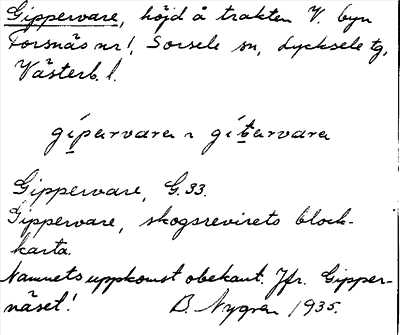 Gippervare, höjd å trakten V. byn
Forsnäs nr 1, Sorsele sn, Lycksele tg,
Västerb. l.
gíparvara ~ gítarvara
Gippervare, G. 33.
Gippervare, skogsrevirets block-
karta.
Namnets uppkomst obekant. Jfr. Gipper-
näset!
B. Nygren 1935.